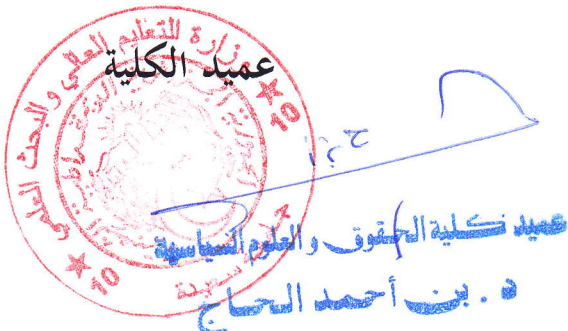 عميد الكلية
وزارة التعليم العالي و البحث العلمي
10
10
عميد كلية الحقوق و العلوم السياسية
د. بن أحمد الحاج